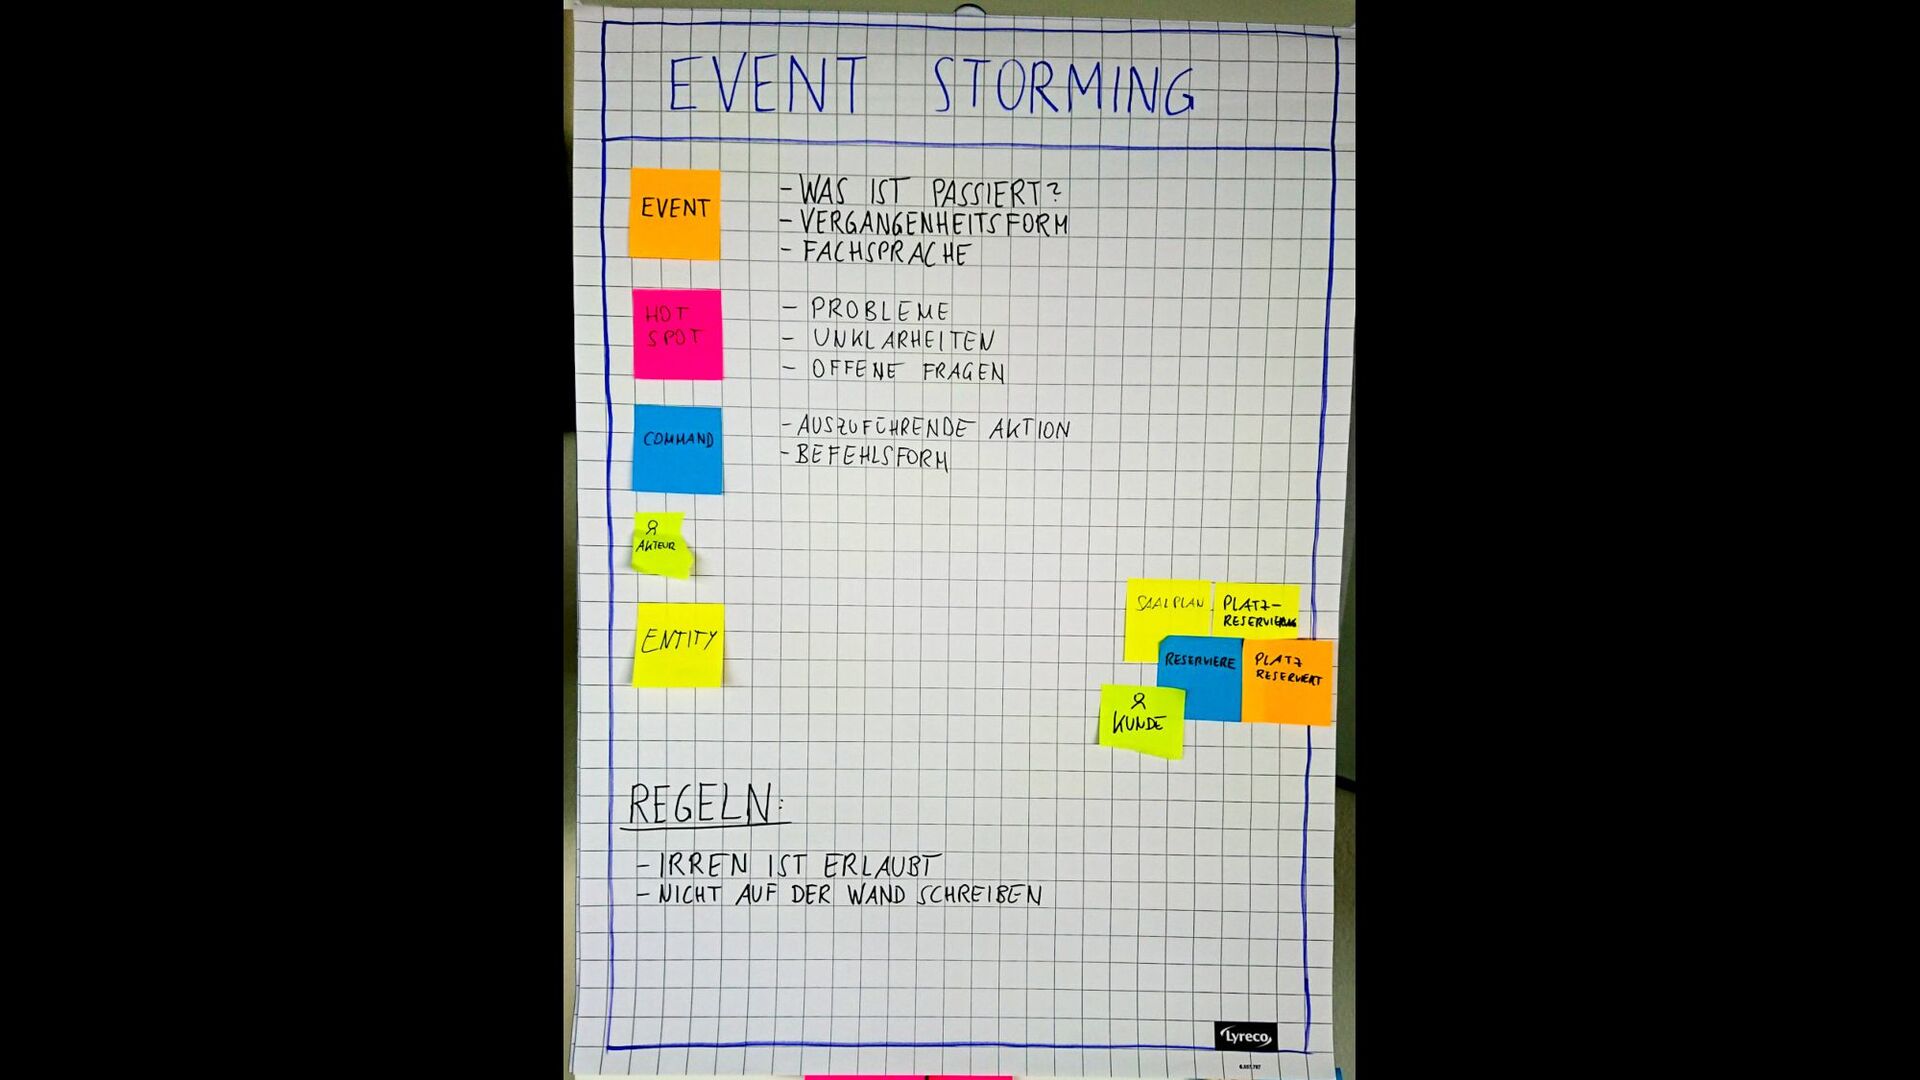 EVENT STORMING
EVENT
- WAS IST PASSIERT?
- VERGANGENHEITSFORM
- FACHSPRACHE
HOT
SPOT
- PROBLEME
- UNKLARHEITEN
- OFFENE FRAGEN
COMMAND
- AUSZUFÜHRENDE AKTION
- BEFEHLSFORM
AKTEUR
ENTITY
SAALPLAN
PLATZ-
RESERVIERUNG
RESERVIERE
PLATZ
RESERVIERT
KUNDE
REGELN:
- IRREN IST ERLAUBT
- NICHT AUF DER WAND SCHREIBEN
Lyreco